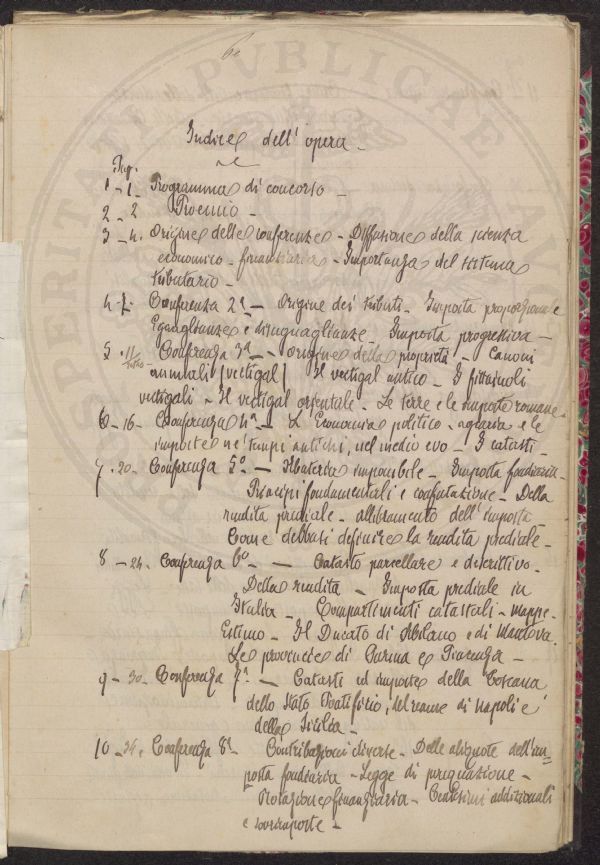 60
Indice dell'opera -
Pag.
1 - 1. Programma di concorso -
2 - 2 Proemio -
3 - 4. Origine delle conferenze - Diffusione della scienza
economico - finanziaria - Importanza del sistema
tributario -
4 - 7. Conferenza 2ª - Origine dei tributi - Imposta proporzionale
Eguaglianze e disuguaglianze - Imposta progressiva -
5 - 11 Conferenza 3ª - Origine della proprietà - Canoni
annuali (vectigal) Il vectigal antico - I fittaiuoli
vectigali - Il vectigal orientale - Le terre e le imposte romane -
6 - 16 - Conferenza 4ª - L'Economia politico - agraria e le
imposte ne' tempi antichi, nel medio evo - I catasti -
7 - 20 - Conferenza 5ª - Materia imponibile - Imposta fondiaria -
Principi fondamentali e confutazione - Della
rendita prediale - allibramento dell'imposta
Come debbasi definire la rendita prediale -
8 - 24. Conferenza 6ª - Catasto parcellare e descrittivo -
Della rendita - Imposta prediale in
Italia - Compartimenti catastali - Mappe -
Estimo - Il Ducato di Milano e di Mantova.
Le provincie di Parma e Piacenza -
9 - 30 - Conferenza 7ª - Catasti ed imposte della Toscana
dello Stato Pontificio, del reame di Napoli e
della Sicilia -
10 - 34. Conferenza 8ª - Contribuzioni diverse - Delle aliquote dell'im-
posta fondiaria - Legge di perequazione -
Rotazione finanziaria - Centesimi addizionali
e sovraposte -